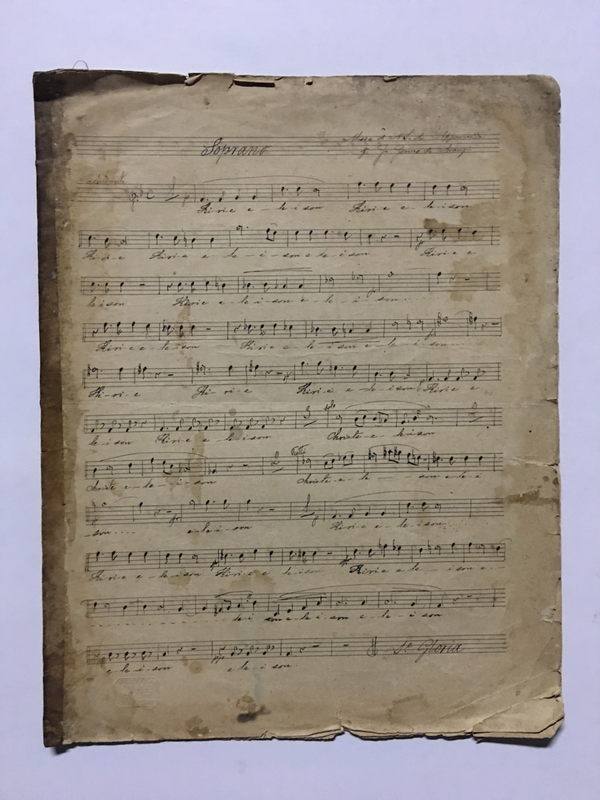 Soprano
Kirie e-le-i son Kirie e-le-i son
Ki-ri-e Kirie e-le-i-son e le i son Kirie e
le i son Kirie e-le-i-son e-le-i-son
Kirie e-le i son Kirie e-le i son e-le-i-son
Ki-ri-e Ki-ri-e Kirie e-le i son Kirie e
le-i son Kirie e-le i son Christe e-le i son
Christe e-le-i-son Christe e-le-son e-le-i
-son e-le-i son Kirie e-le-i son
Kirie e-le-i son Kirie e le i son Kirie e le-i son e
le-i son e-le-i son e-le-i son
e-le-i-son e-le-i son Se Gloria